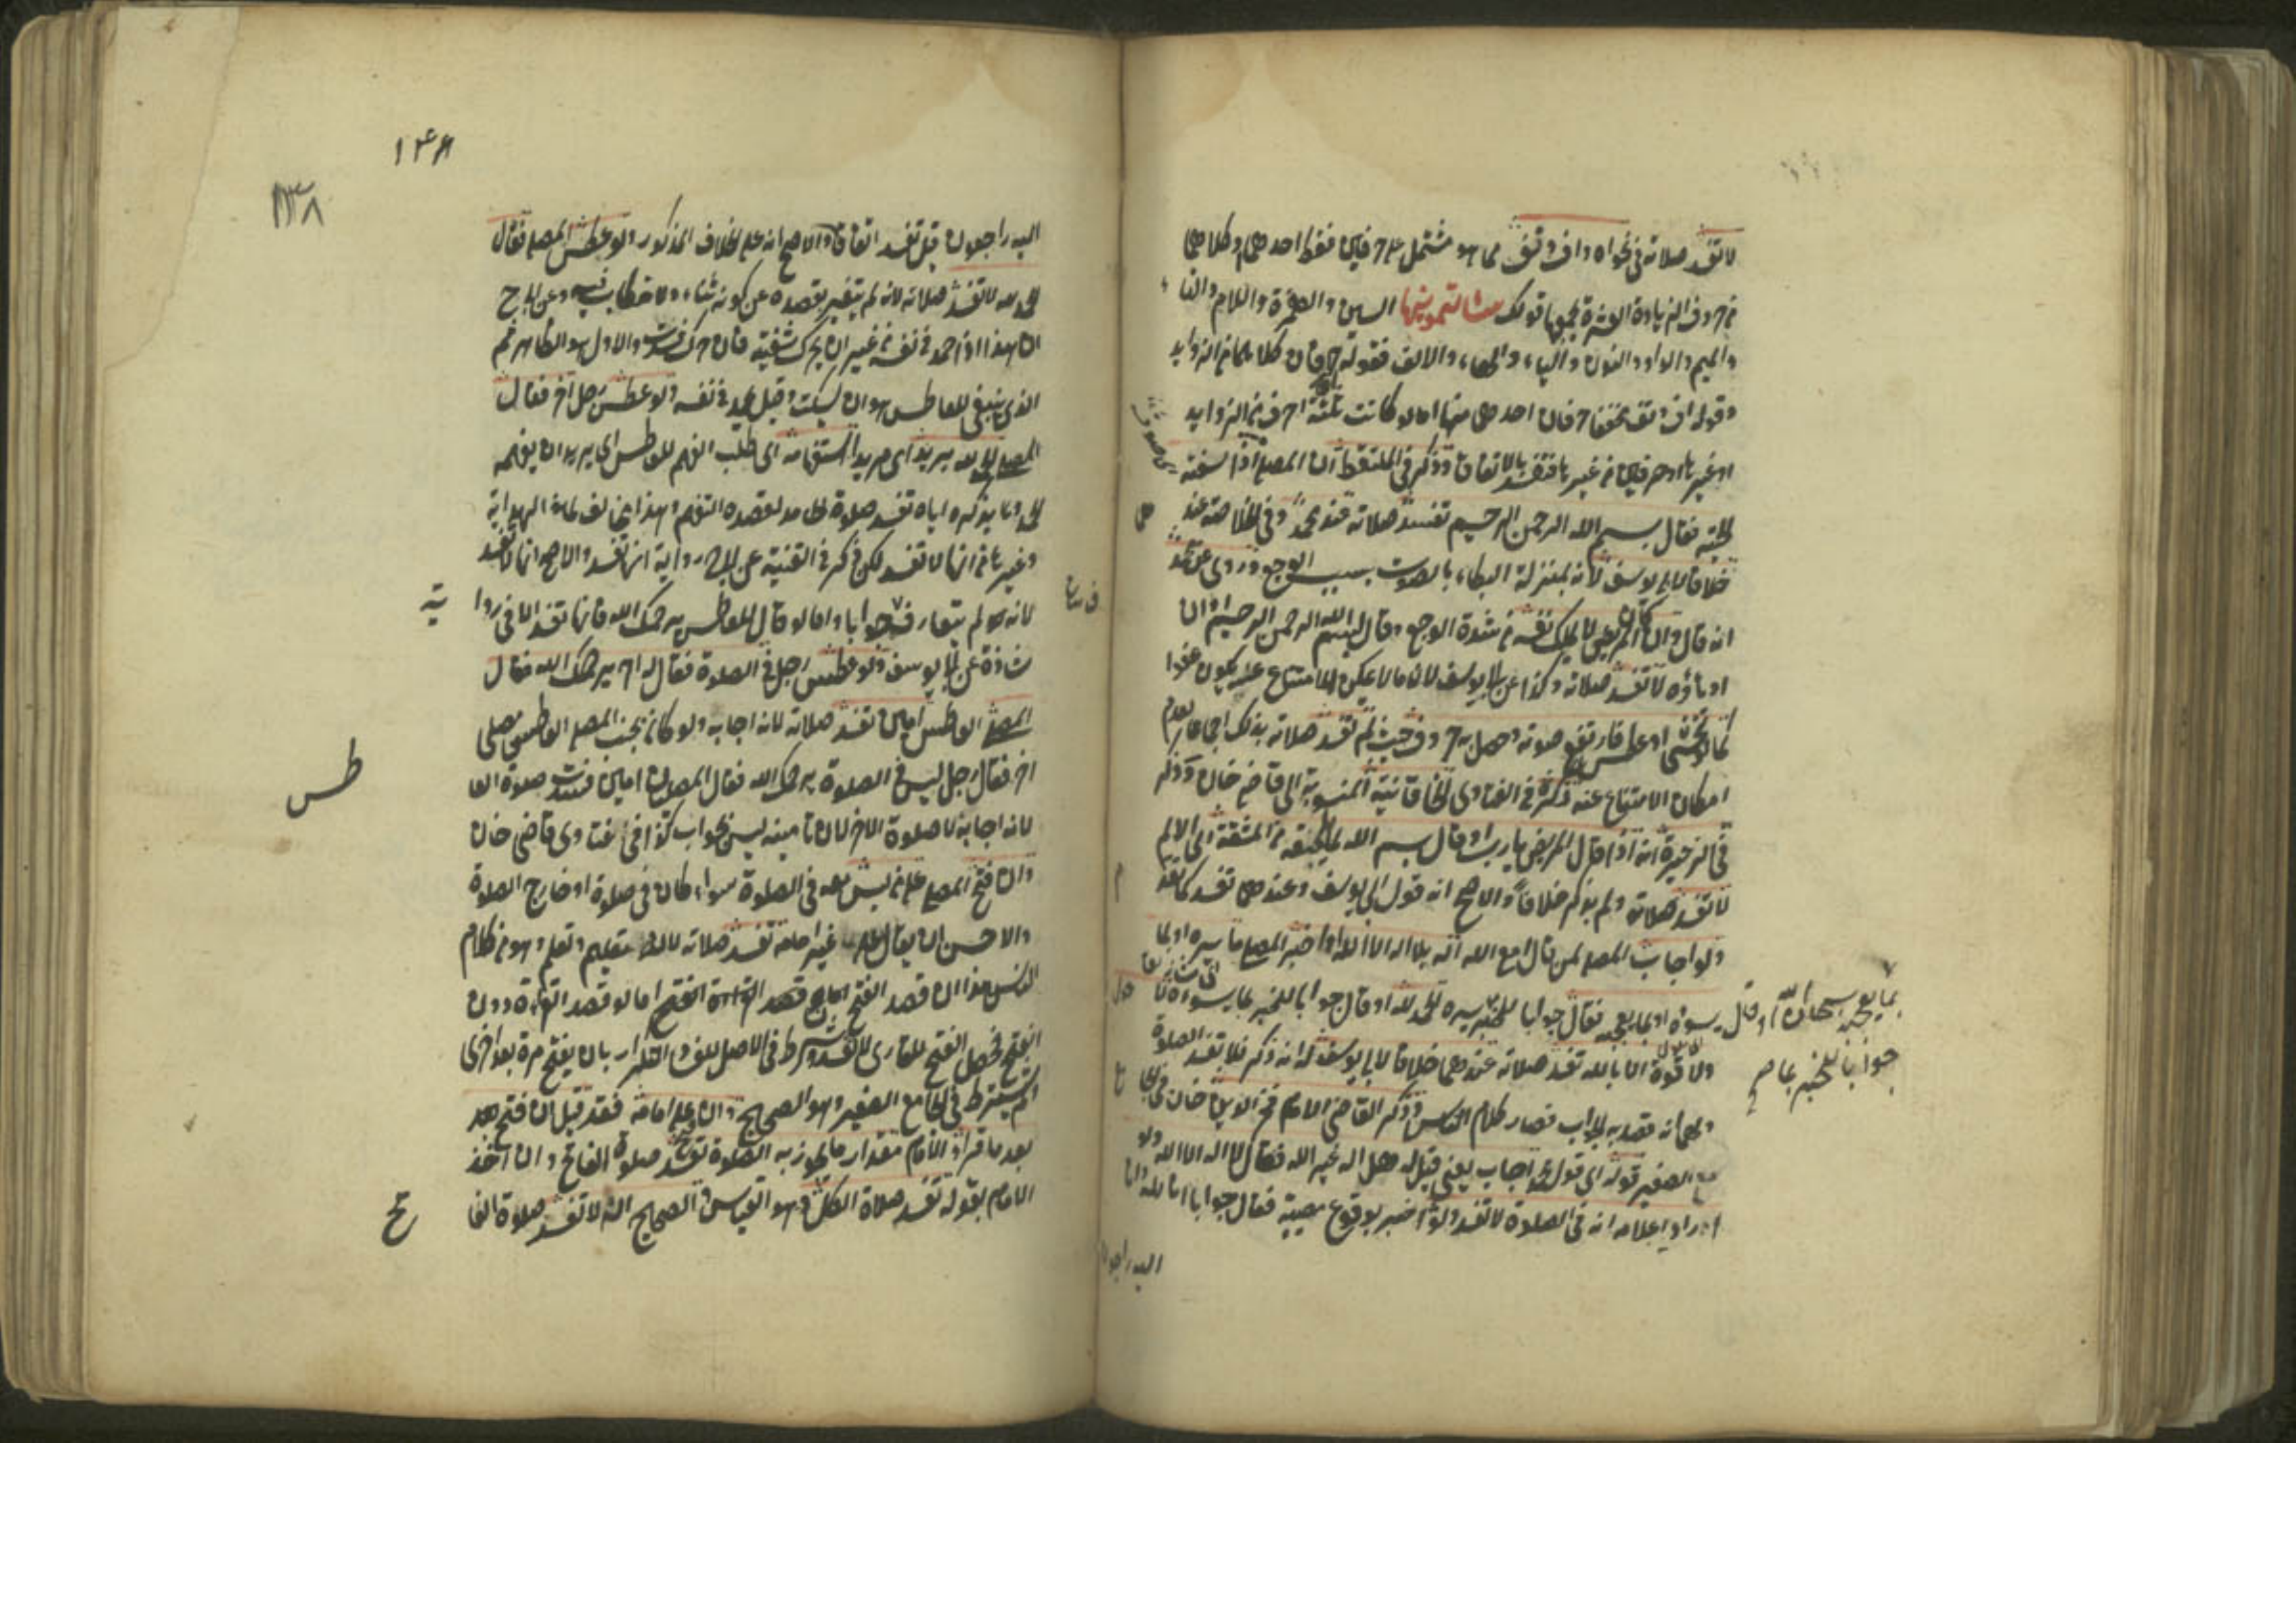 لا تفسد صلاته في نحو اه واف وتف مما هو مشتمل على حرفين فقط احدهما وكلاهما
من حروف الزيادة العشرة يجمعها قولك سألتمونيها السين والهمزة واللام والتا
والميم والواو والنون والياء والهاء والالف فقوله اه فان كلاهما من الزوايد
وقوله اف وتف مخففا فان احدهما منها اما لو كانت ثلثة احرف من الزوايد
او غيرها او حرفين من غيرها فتفسد بالاتفاق وذكر في الملتقط ان المصلى اذا لسعته
الحية فقال بسم الله الرحمن الرحيم تفسد صلاته عند محمد وفي الخلاصة عند
خلافا لابي يوسف لانه بمنزلة البكاء بالصوت بسبب الوجع وروى عن محمد
انه قال وان كان المريض لا يملك نفسه من شدة الوجع وقال بسم الله الرحمن الرحيم او ان
او تاوه لا تفسد صلاته وكذا عن ابي يوسف لان ما لا يمكن الامتناع عنه يكون عفوا
كما لو تجشى او عطس فارتفع صوته وحصل به حروف حيث لم تفسد صلاته بذلك اجماعا لعدم
امكان الامتناع عنه ذكره في الفتاوى الخاقانية المنسوبة الى قاضى خان وذكر
في الذخيرة انه اذا قال المريض يا رب او قال بسم الله لما يلحقه من المشقة او الالم
لا تفسد صلاته ولم يذكر خلافا والاصح انه قول ابي يوسف وعندهما تفسد كما تقد
ولو اجاب المصلى لمن قال امع الله اله بلا اله الا الله او اخبر المصلى ما يسره او بما
يسوؤه او بما يعجبه فقال جوابا للمخبر يسره الحمد لله او قال جوابا للمخبر بما يسوؤه لا حول
بما يعجبه سبحان الله او قال
جوابا للمخبر بما
ولا قوة الا بالله تفسد صلاته عندهما خلافا لابي يوسف له انه ذكر فلا تفسد الصلوة
ولهما انه قصد به الجواب فصار كلام الناس وذكر القاضى الامام فخر الدين خان في الجا
مع الصغير قوله اى قول محمد اجاب يعنى قيل له هل اله غير الله فقال لا اله الا الله ولو
اراد اعلامه انه في الصلوة لا تفسد ولو اخبر بوقوع مصيبة فقال جوابا انا لله وانا
اليه راجعون
١٣٨
اليه راجعون قيل تفسد اتفاقا والاصح انه على الخلاف المذكور ولو عطس المصلى فقال
الحمد لله لا تفسد صلاته لانه لم يتغير بقصده عن كونه ثناء ولا خطاب فيه وعن ابي ح
ان هذا اذا حمد في نفسه من غير ان يحرك شفتيه فان حرك فسدت والاول هو الظاهر ثم
الذى ينبغى للعاطس هو ان يسكت وقيل يحمد في نفسه ولو عطس رجل آخر فقال
المصلى الحمد لله يريد اى مريدا استفهامه اى طلب الفهم للعاطس اى يريد ان يفهمه
تفسد صلوة الحامد لقصده التفهم وهذا مخالف لما في الهداية
وغيرها من انها لا تفسد لكن ذكر في القنية عن ابي ح رواية انها تفسد والاصح انها لا تفسد
لانه لم يتعارف جوابا واما لو قال للعاطس يرحمك الله فانها تفسد الا في روا
ية
شاذة عن ابي يوسف ولو عطس رجل في الصلوة فقال له آخر يرحمك الله فقال
المصلى العاطس امين تفسد صلاته لانه اجابه ولو كان بجنب المصلى العاطس مصلى
آخر فقال رجل ليس في الصلوة يرحمك الله فقال المصليان امين فسدت صلوة العا
طس
لانه اجابة لا صلوة الآخر لان تامينه ليس بجواب كذا في فتاوى قاضى خان
وان فتح المصلى على من ليس معه في الصلوة سواء كان في صلوة او خارج الصلوة
والاحسن ان يقال على غير امامه تفسد صلاته لانه تعليم وتعلم وهو من كلام
الناس هذا ان قصد الفتح اما لو قصد القراءة دون
الفتح فحصل الفتح للقارى لا تفسد وشرط في الاصل للفساد التكرار بان يفتح مرة بعد اخرى
لم يشترط في الجامع الصغير وهو الصحيح وان فتح على امامه فقد قيل ان فتح بعد
بعد ما قرأ الامام مقدار ما يجوز به الصلوة تفسد صلوة الفاتح وان اخذ
الامام بقوله تفسد صلاة الكل وهو القياس والصحيح انه لا تفسد صلوة الفا
تح